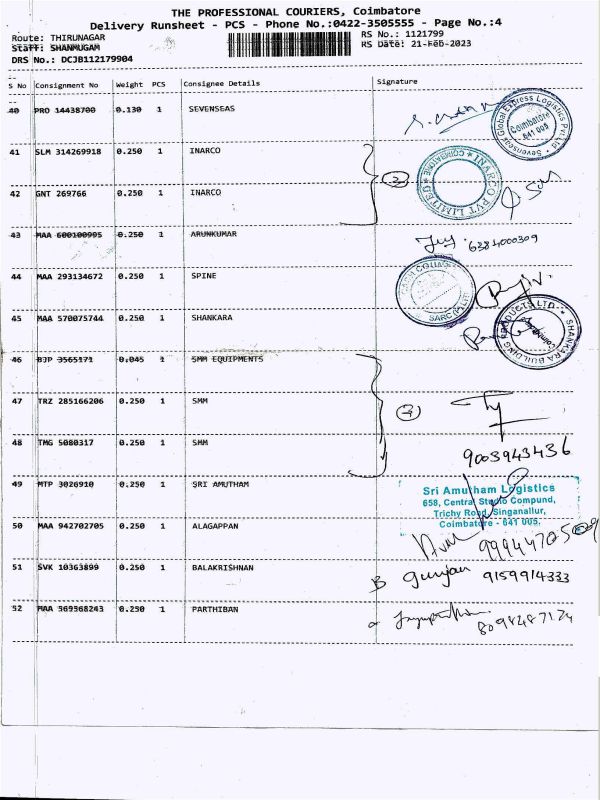 THE PROFESSIONAL COURIERS, Coimbatore
Delivery Runsheet - PCS - Phone No.:0422-3505555 - Page No.:4
Route: THIRUNAGAR
RS No.: 1121799
Staff: SHANMUGAM
RS Date: 21-Feb-2023
DRS No.: DCJB112179904
S No Consignment No Weight PCS Consignee Details Signature
40 PRO 14438700 0.130 1 SEVENSEAS
Sevenseas Global Express Logistics Pvt Ltd
Coimbatore
641 005
41 SLM 314269918 0.250 1 INARCO
2
INARCO PVT LIMITED COIMBATORE
42 GNT 269766 0.250 1 INARCO
43 MAA 600100995 0.250 1 ARUNKUMAR
6384000309
44 MAA 293134672 0.250 1 SPINE
SARC (P) LTD
45 MAA 570075744 0.250 1 SHANKARA
SHANKARA BUILDING PRODUCTS LTD
Coimbatore
46 BJP 3565171 0.045 1 SMM EQUIPMENTS
47 TRZ 285166206 0.250 1 SMM
48 TMG 5080317 0.250 1 SMM
9003943436
49 MTP 3026910 0.250 1 SRI AMUTHAM
Sri Amutham Logistics
658, Central Studio Compund,
Trichy Road, Singanallur,
Coimbatore - 641 005.
50 MAA 942702705 0.250 1 ALAGAPPAN
51 SVK 10363899 0.250 1 BALAKRISHNAN
Gunjan 9159914333
52 MAA 569568243 0.250 1 PARTHIBAN
8098487124